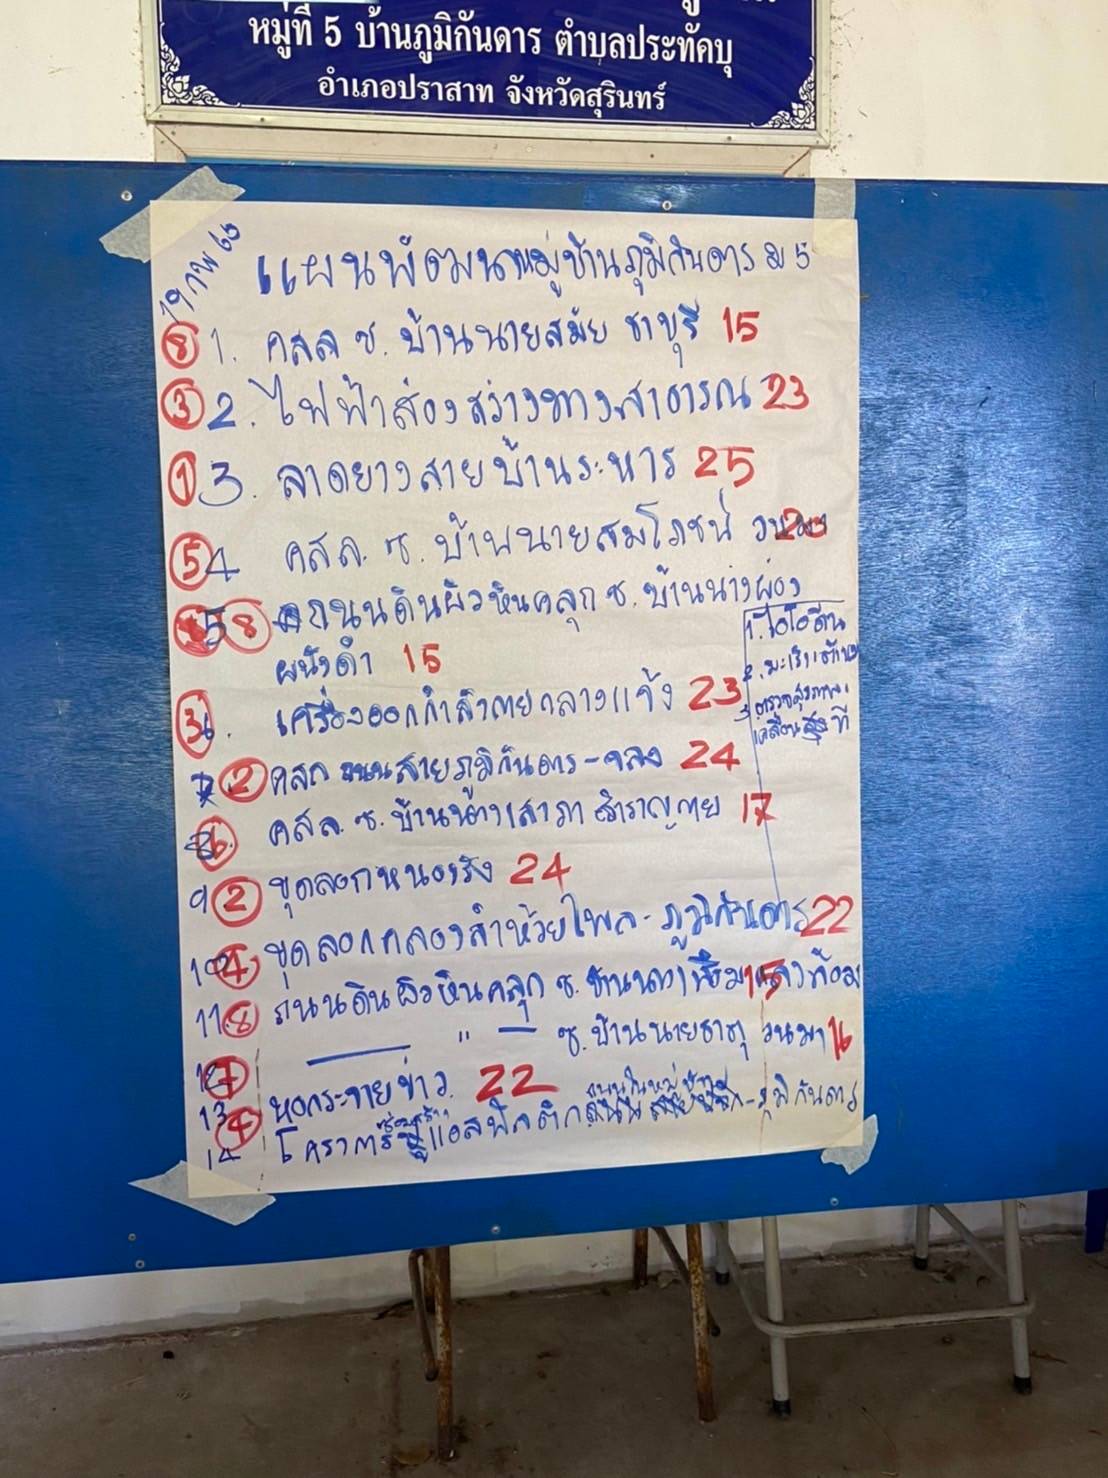 หมู่ที่ 5 บ้านภูมิกันดาร ตำบลประทัดบุ
อำเภอปราสาท จังหวัดสุรินทร์
19 กพ 68
แผนพัฒนาหมู่บ้านภูมิกันดาร ม 5
8 1. คสล ซ. บ้านนายสมัย ชาบุรี 15
3 2. ไฟฟ้าส่องสว่างทางสาธารณ 23
1 3. ลาดยางสายบ้านระหาร 25
5 4 คสล. ซ. บ้านนายสมโภชน์ วนมา 20
5 8 ถนนดินผิวหินคลุก ซ. บ้านนางผ่อง
ผนังดำ 15
3 6. เครื่องออกกำลังกายกลางแจ้ง 23
7 2 คสล ถนนสายภูมิกันดาร-จลง 24
8 6 คสล. ซ. บ้านนางเสาวภา สำราญกาย 17
9 2 ขุดลอกหนองรัง 24
10 4 ขุดลอกคลองลำห้วยไพล - ภูมิกันดาร 22
11. 8 ถนนดินผิวหินคลุก ซ. 15
12 7 " ซ. บ้านนายธาตุ วนมา 16
13 4 หอกระจายข่าว. 22
14 โครงการ แอสฟัลติก ถนนในหมู่บ้าน - ภูมิกันดาร
1. ไอโอดีน
2. มะเร็งเต้านม
3. ตรวจสุขภาพ
เคลื่อนที่